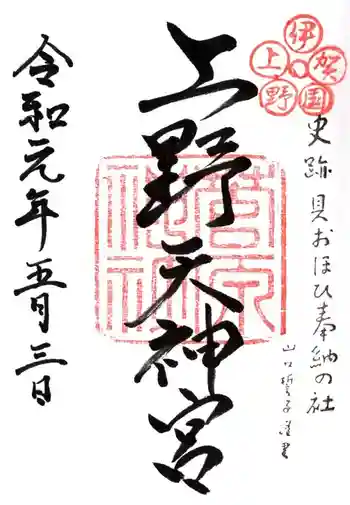 伊賀国上野
史跡 貝おほひ奉納の社
山口誓子
上野天神宮
菅原神社
令和元年五月三日